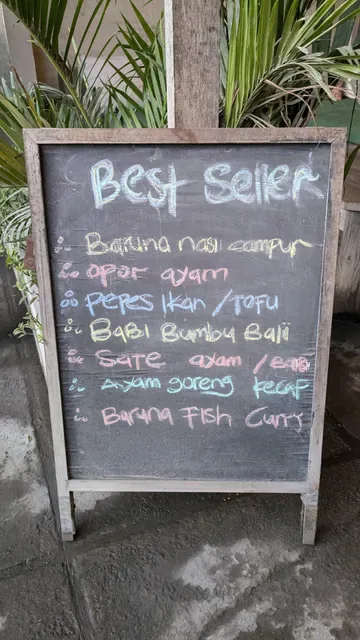 Best Seller
Baruna nasi campur
opor ayam
Pepes Ikan / TOFU
BaBi Bumbu Bali
Sate ayam / BaBi
Ayam goreng kecap
Baruna Fish Curry